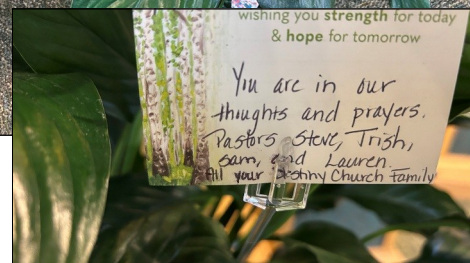 wishing you strength for today
& hope for tomorrow
You are in our
thoughts and prayers.
Pastors Steve, Trish,
Sam, and Lauren.
All your Destiny Church Family